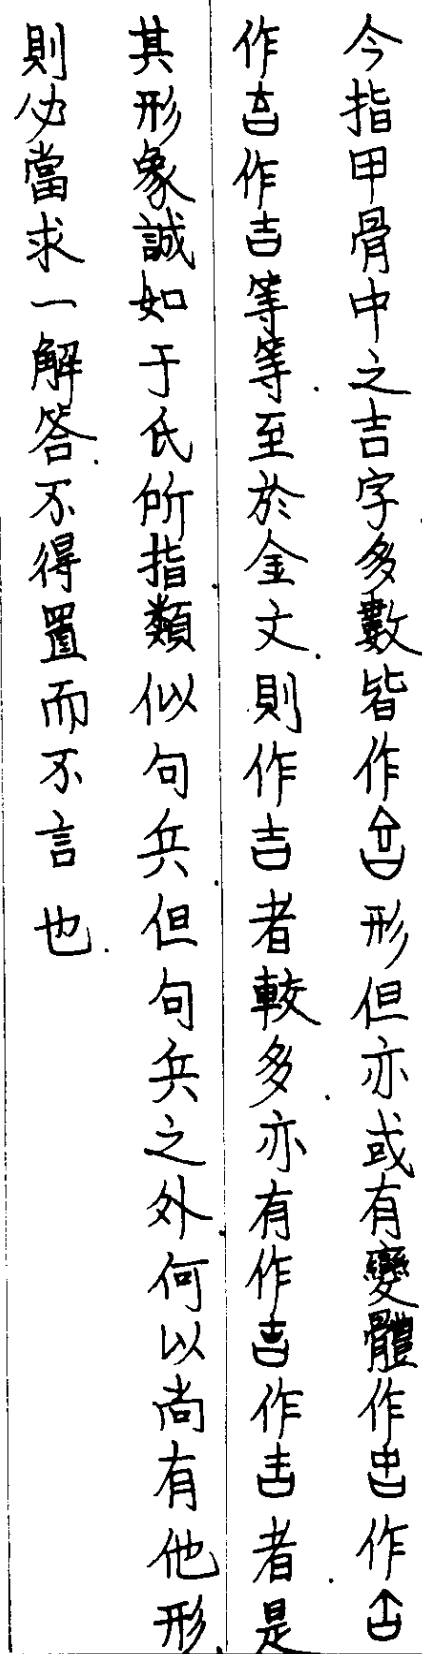 今指甲骨中之吉字多數皆作形但亦或有變體作作
作作吉等等.至於金文.則作吉者較多.亦有作作者是
其形象誠如于氏所指.類似句兵.但句兵之外.何以尚有他形.
則必當求一解答.不得置而不言也.